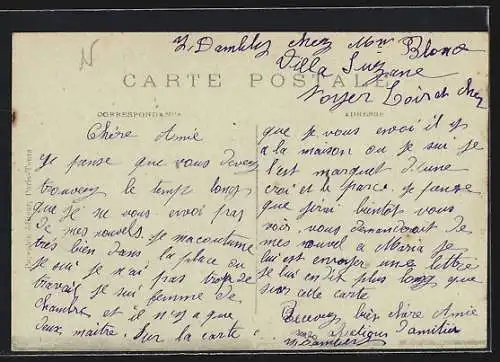 chez Mme Blond
Villa Suzane
Noyer Loir et Cher
CARTE POSTALE
CORRESPONDANCE
ADRESSE
Chère Amie
Je pense que vous devez
trouvez le temps long
que je ne vous envoi pas
de mes nouvels. je macoutume
très bien dans la place ou
je sui je n'ai pas trop de
travail je sui femme de
chambre et il n'y a que
deux maitre. Sur la carte
que je vous envoi il y
a la maison ou je sui je
l'est marquet d'une
croi et le parc. je pense
que jirai bientot vous
voir. vous demanderait de
mes nouvel a Maria je
lui est envoyer une lettre
je lui en dit plus long que
sur cette carte
Recevez bien chère Amie
mes amitier